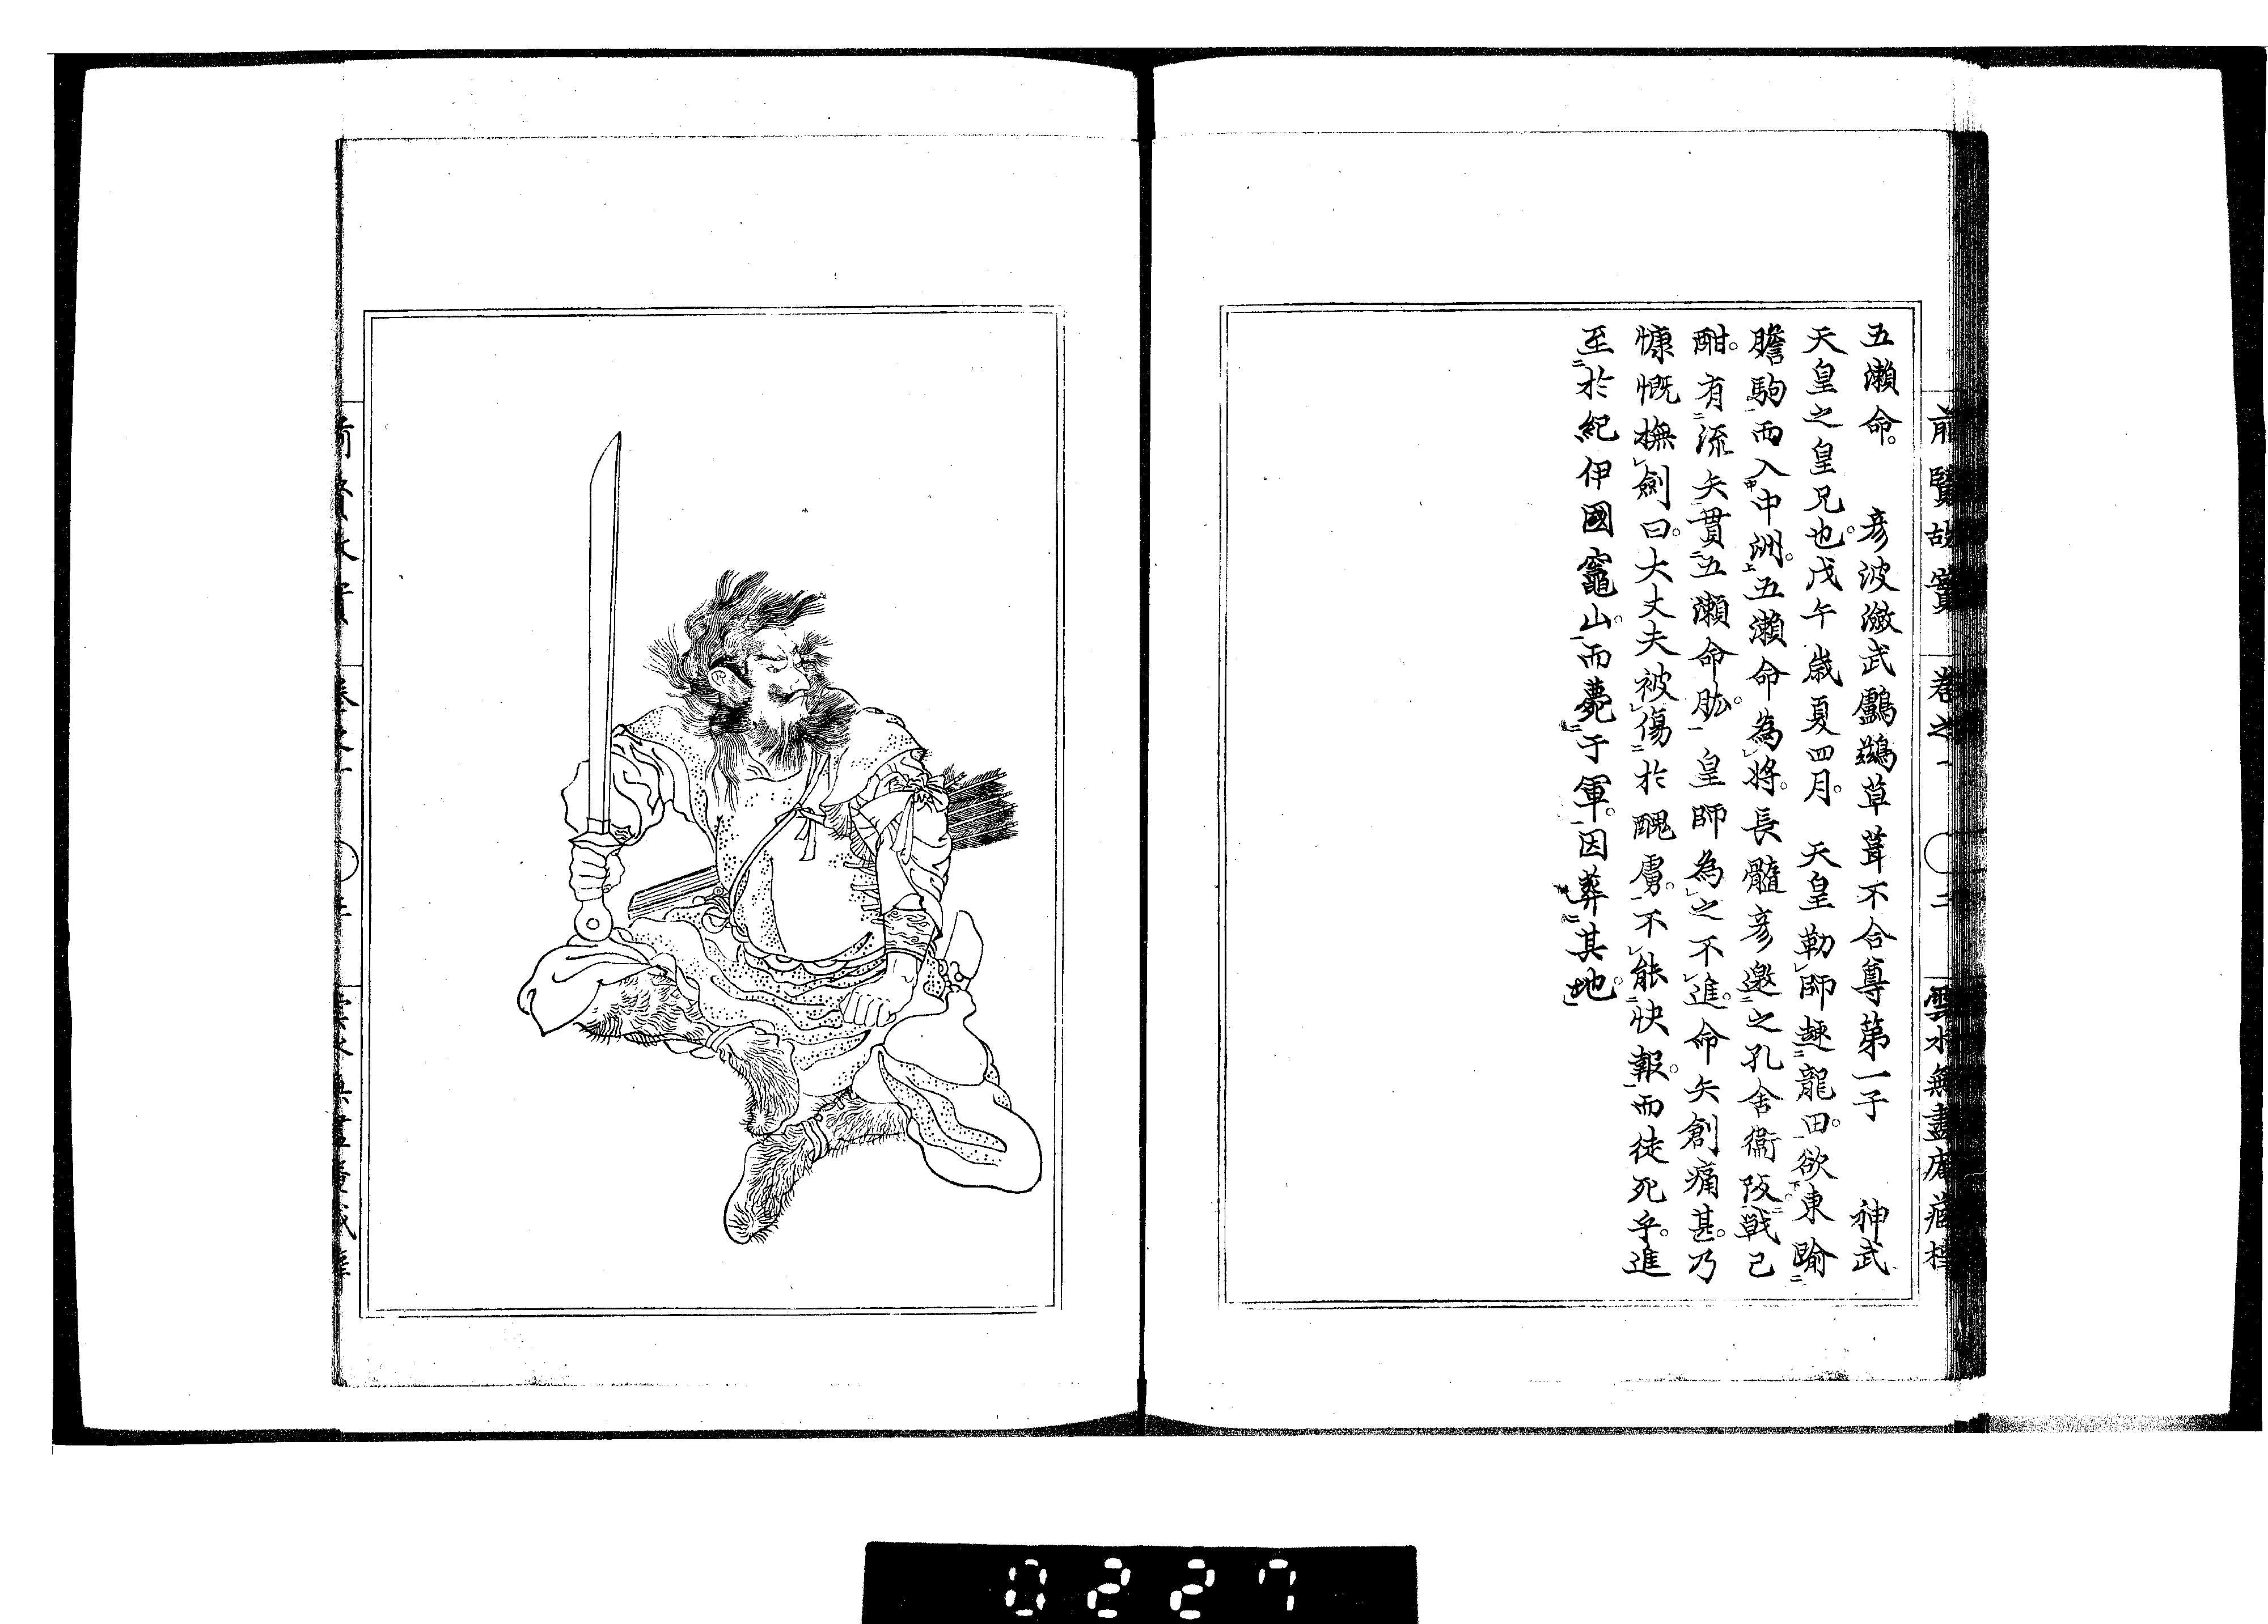 前賢故實 卷之一 二 雲水無盡庵
五瀨命。 彦波瀲武鸕鷀草葺不合尊第一子 神武
天皇之皇兄也。戊午歳夏四月。 天皇勒師趣龍田。欲東踰
膽駒而入中洲。五瀨命為將。長髓彦邀之孔舍衞阪。戦已
酣。有流矢貫五瀨命肱。 皇師為之不進。命矢創痛甚。乃
慷慨撫劍曰。大丈夫被傷於醜虜。不能快報。而徒死乎。進
至於紀伊國竈山。而薨于軍。因葬其地。
0227